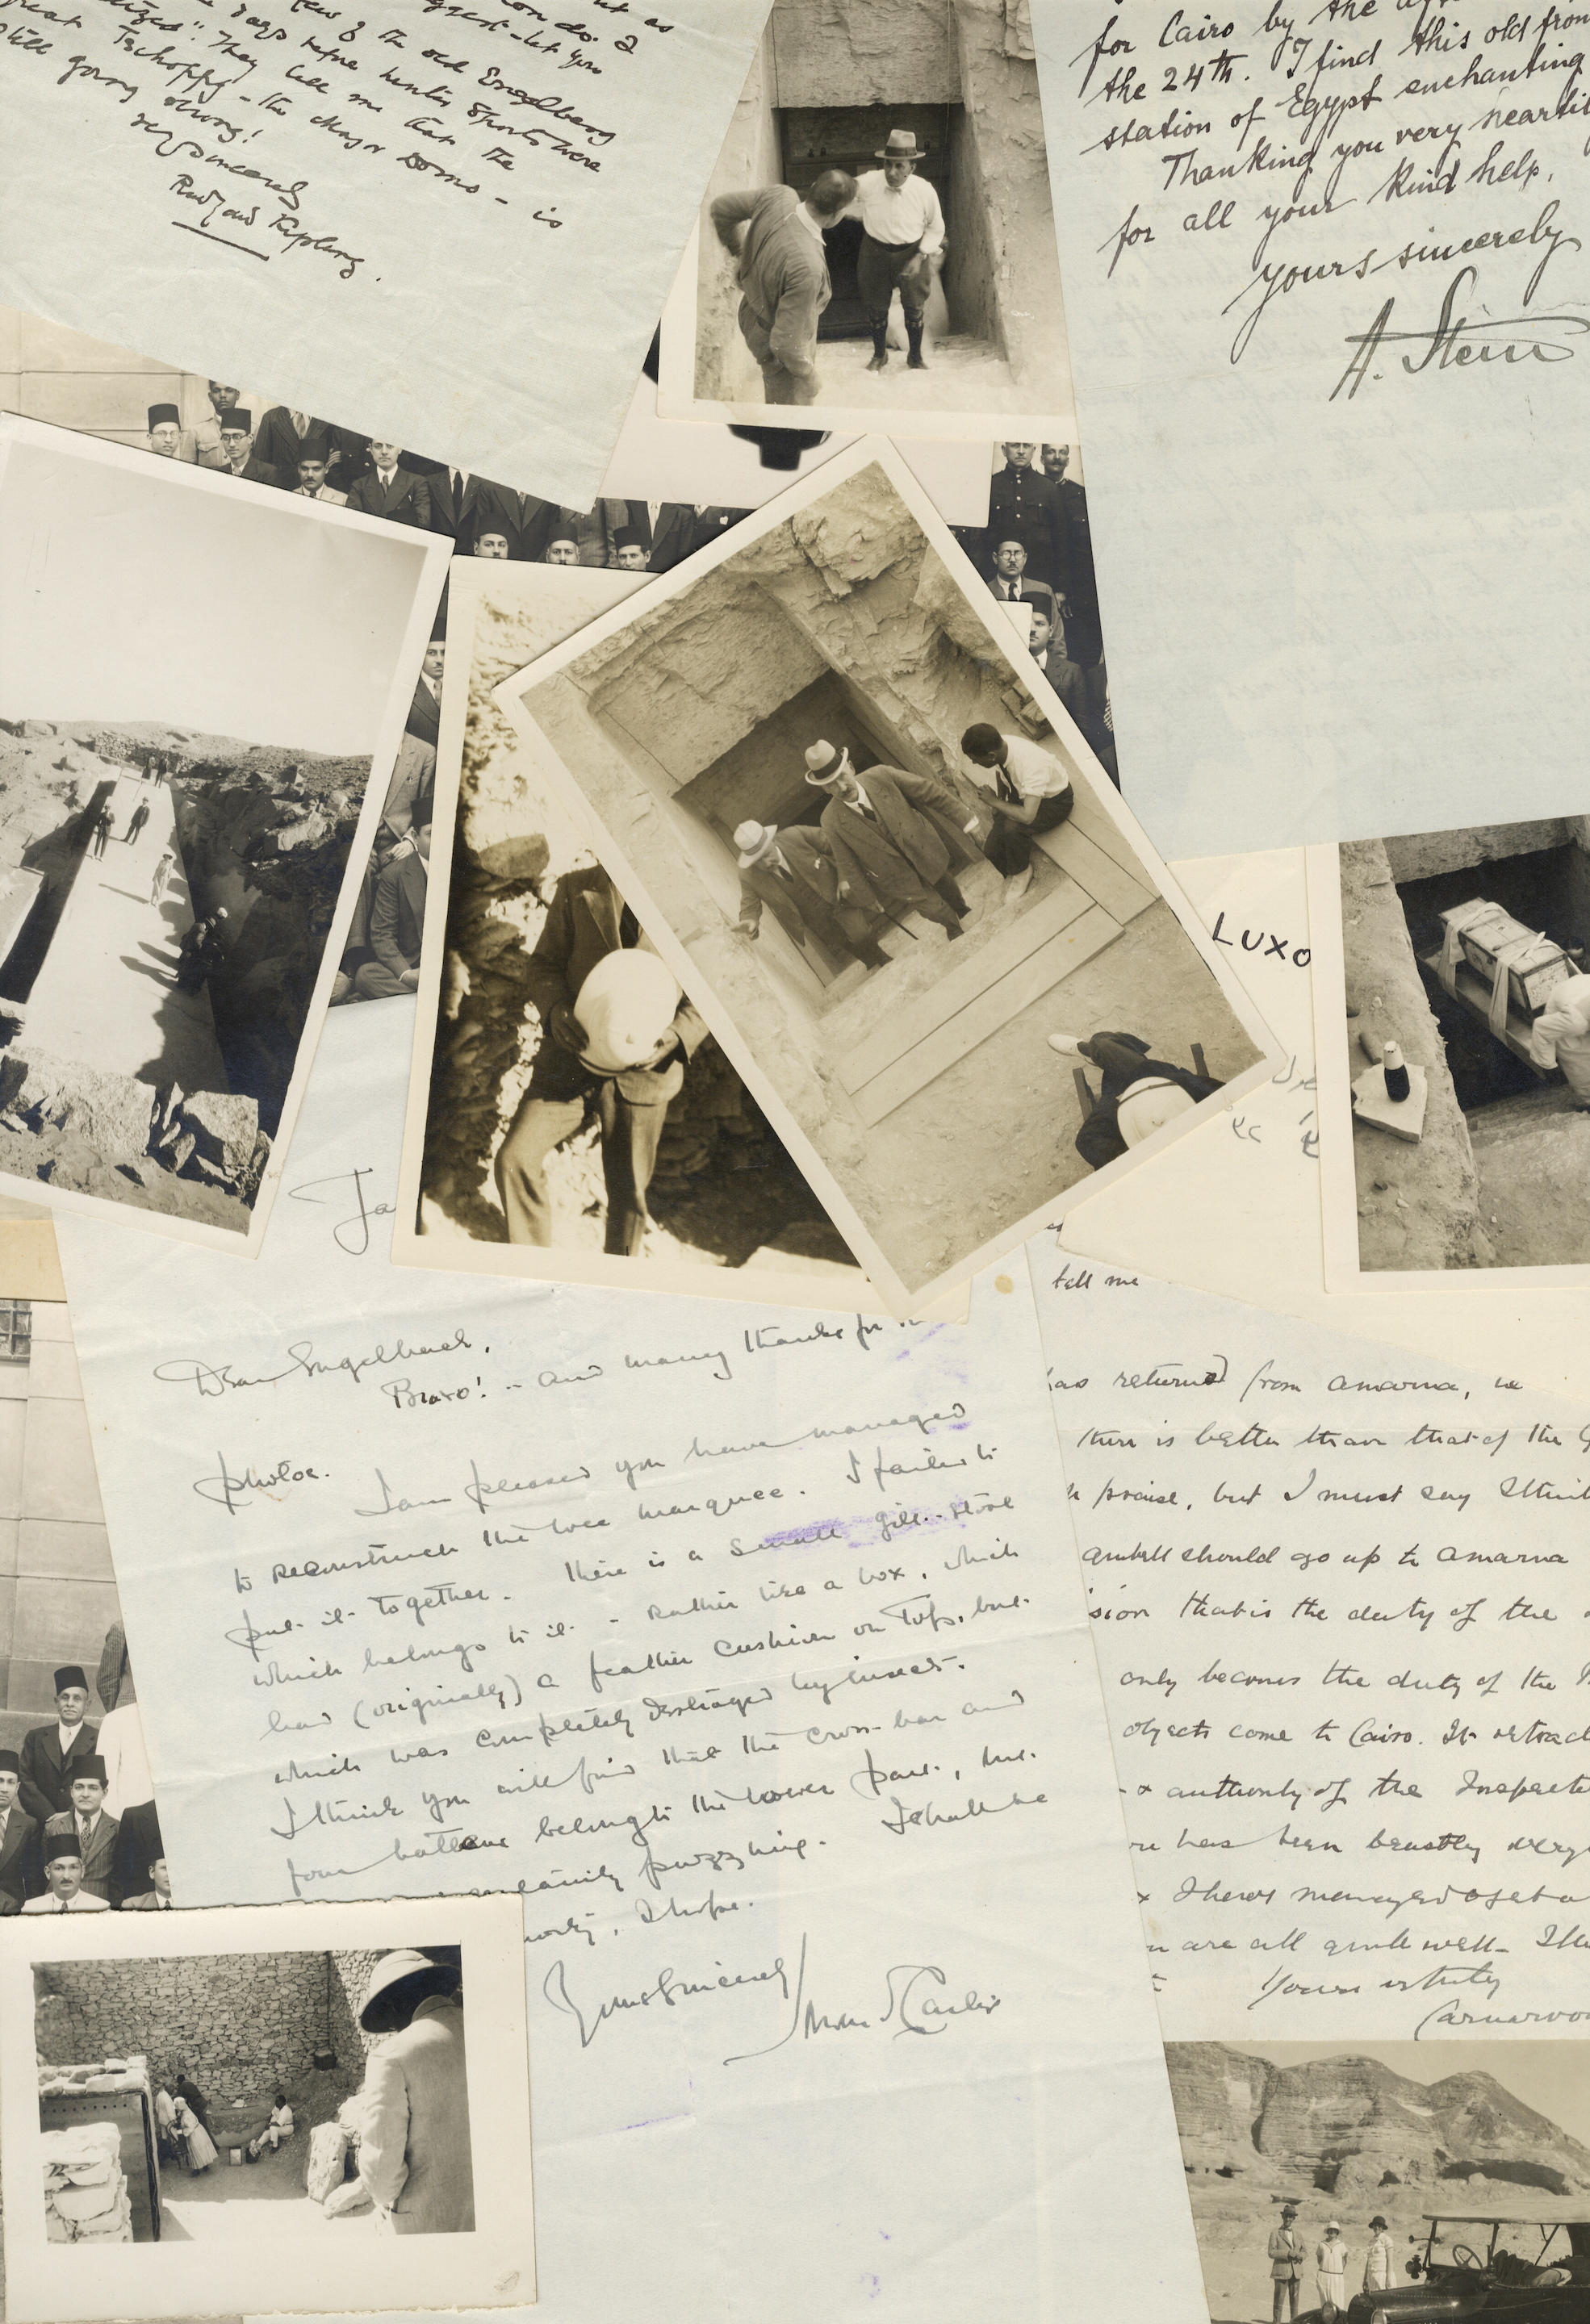 few of the old Engelberg
days before winter sports were
They tell me that the
great Tschoppy - the Major Domo - is
still going strong!
Very sincerely
Rudyard Kipling.
for Cairo by the
the 24th. I find this old fron
station of Egypt enchanting
Thanking you very heartil
for all your kind help,
yours sincerely
A. Stein
LUXO
Ja
Dear Engelbach,
Bravo! - and many thanks for
photos.
I am pleased you have managed
to reconstruct the wee marquee. I failed to
put it together. There is a small gilt-stool
which belongs to it - rather like a box, which
had (originally) a feather cushion on top, but
which was completely destroyed by insects.
I think you will find that the cross-bar and
four battens belong to the lower part, but
puzzling. I shall be
I hope.
Yours Sincerely
Howard Carter
tell me
has returned from Amarna, we
there is better than that of the
praise, but I must say I think
should go up to Amarna
sion that is the duty of the
only becomes the duty of the
objects come to Cairo. It
authority of the Inspecto
has been beastly very
I have managed to get a
are all quite well -
Yours v truly
Carnarvon